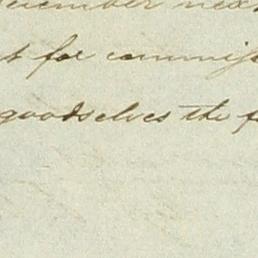 ecember next
t for commiss
goodselves the f